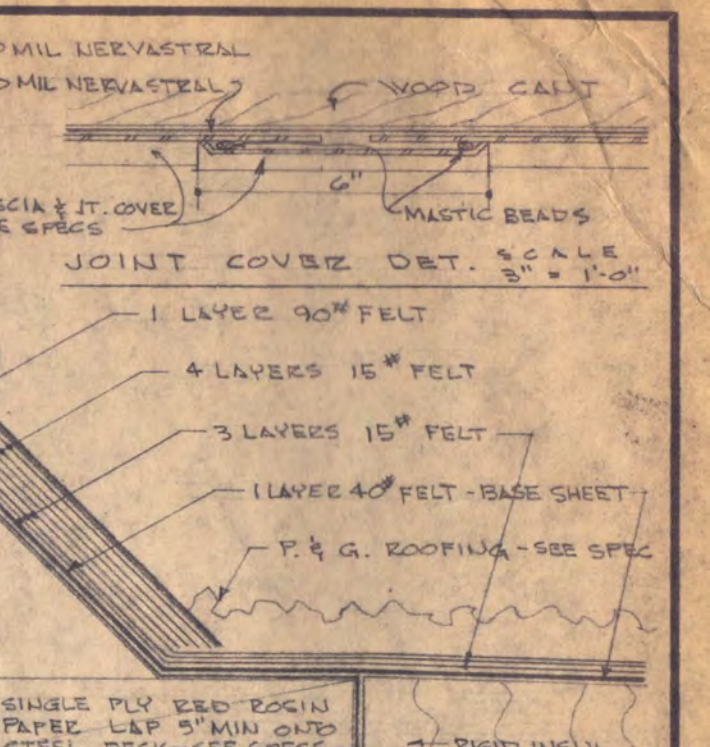 MIL NERVASTRAL
MIL NERVASTRAL
WOOD CANT
6"
& JT. COVER
SPECS
MASTIC BEADS
JOINT COVER DET. SCALE
3" = 1'-0"
1 LAYER 90# FELT
4 LAYERS 15# FELT
3 LAYERS 15# FELT
1 LAYER 40# FELT - BASE SHEET
P. & G. ROOFING - SEE SPEC
SINGLE PLY RED ROSIN
PAPER LAP 5" MIN ONTO
STEEL DECK - SEE SPECS
RIGID INSUL